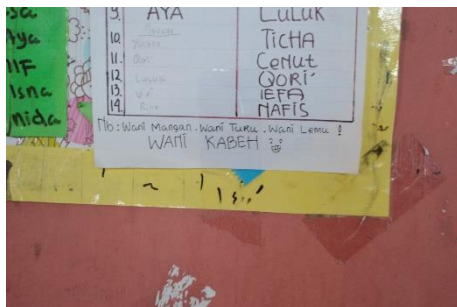 Aya
Isna
9. AYA LULUK
10. TICHA
11. Qori CENUT
12. Luluk QORI
13. IEFA
14. NAFIS
Nb : Wani Mangan . Wani Turu . Wani Lemu !
WANI KABEH